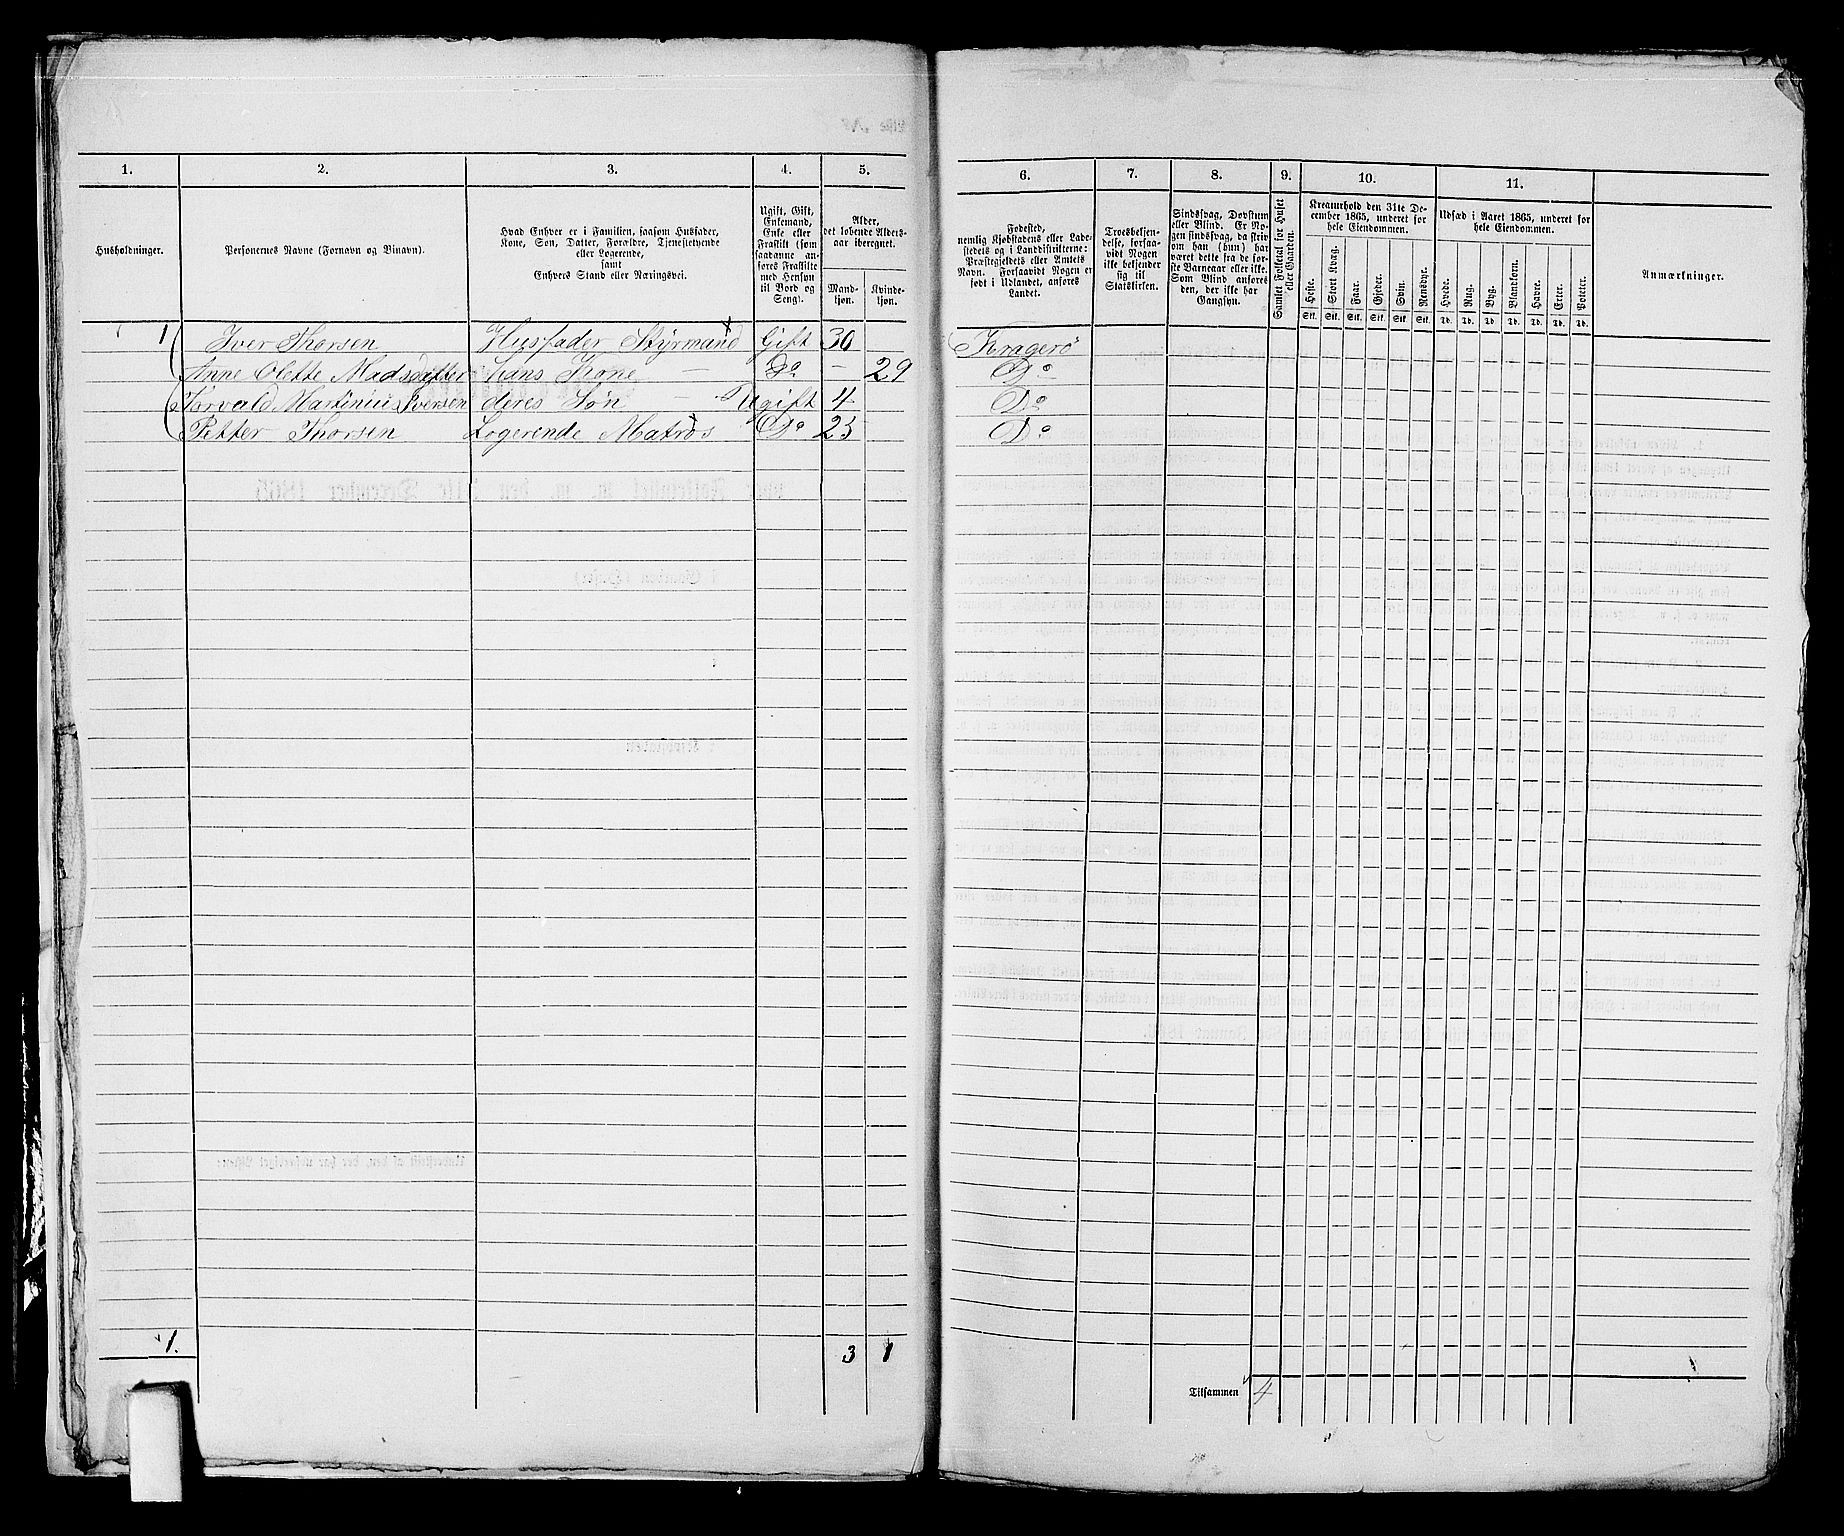 1. 2. 3. 4. 5.
Husholdninger.
Personernes Navne (Fornavn og Binavn).
Hvad Enhver er i Familien, saasom Husfader,
Kone, Søn, Datter, Forældre, Tjenestetyende
eller Logerende,
samt
Enhvers Stand eller Næringsvei.
Ugift, Gift,
Enkemand,
Enke eller
Fraskilt (som
saadanne an-
føres Fraskilte
med Hensyn
til Bord og
Seng).
Alder,
det løbende Alders-
aar iberegnet.
Mand-
kjøn.
Kvinde-
kjøn.
1 Iver Thorsen Husfader Styrmand Gift 30
Anne Olette Madsdatter Hans Kone — Do — 29
Torvald Martinius Iversen deres Søn Ugift 4
Petter Thorsen Logerende Matros Do 23
1. 3 1
6. 7. 8. 9. 10. 11.
Fødested,
nemlig Kjøbstadens eller Lade-
stedets og i Landdistrikterne:
Præstegjeldets eller Amtets
Navn. Forsaavidt Nogen er
født i Udlandet, anføres
Landet.
Troesbekjen-
delse, forsaa-
vidt Nogen
ikke bekjender
sig til
Statskirken.
Sindssvag, Døvstum
eller Blind. Er No-
gen sindssvag, da skriv
om han (hun) har
været dette fra de før-
ste Barneaar eller ikke.
Som Blind anføres
den, der ikke har
Gangsyn.
Samlet Folketal for Huset
eller Gaarden.
Kreaturhold den 31te De-
cember 1865, underet for
hele Eiendommen.
Heste. Stort Kvæg. Faar. Gjeder. Svin. Rensdyr.
Stk. Stk. Stk. Stk. Stk. Stk.
Udsæd i Aaret 1865, underet for
hele Eiendommen.
Hvede. Rug. Byg. Blandkorn. Havre. Erter. Poteter.
Td. Td. Td. Td. Td. Td. Td.
Anmærkninger.
Kragerö
Do
Do
Do
Tilsammen 4